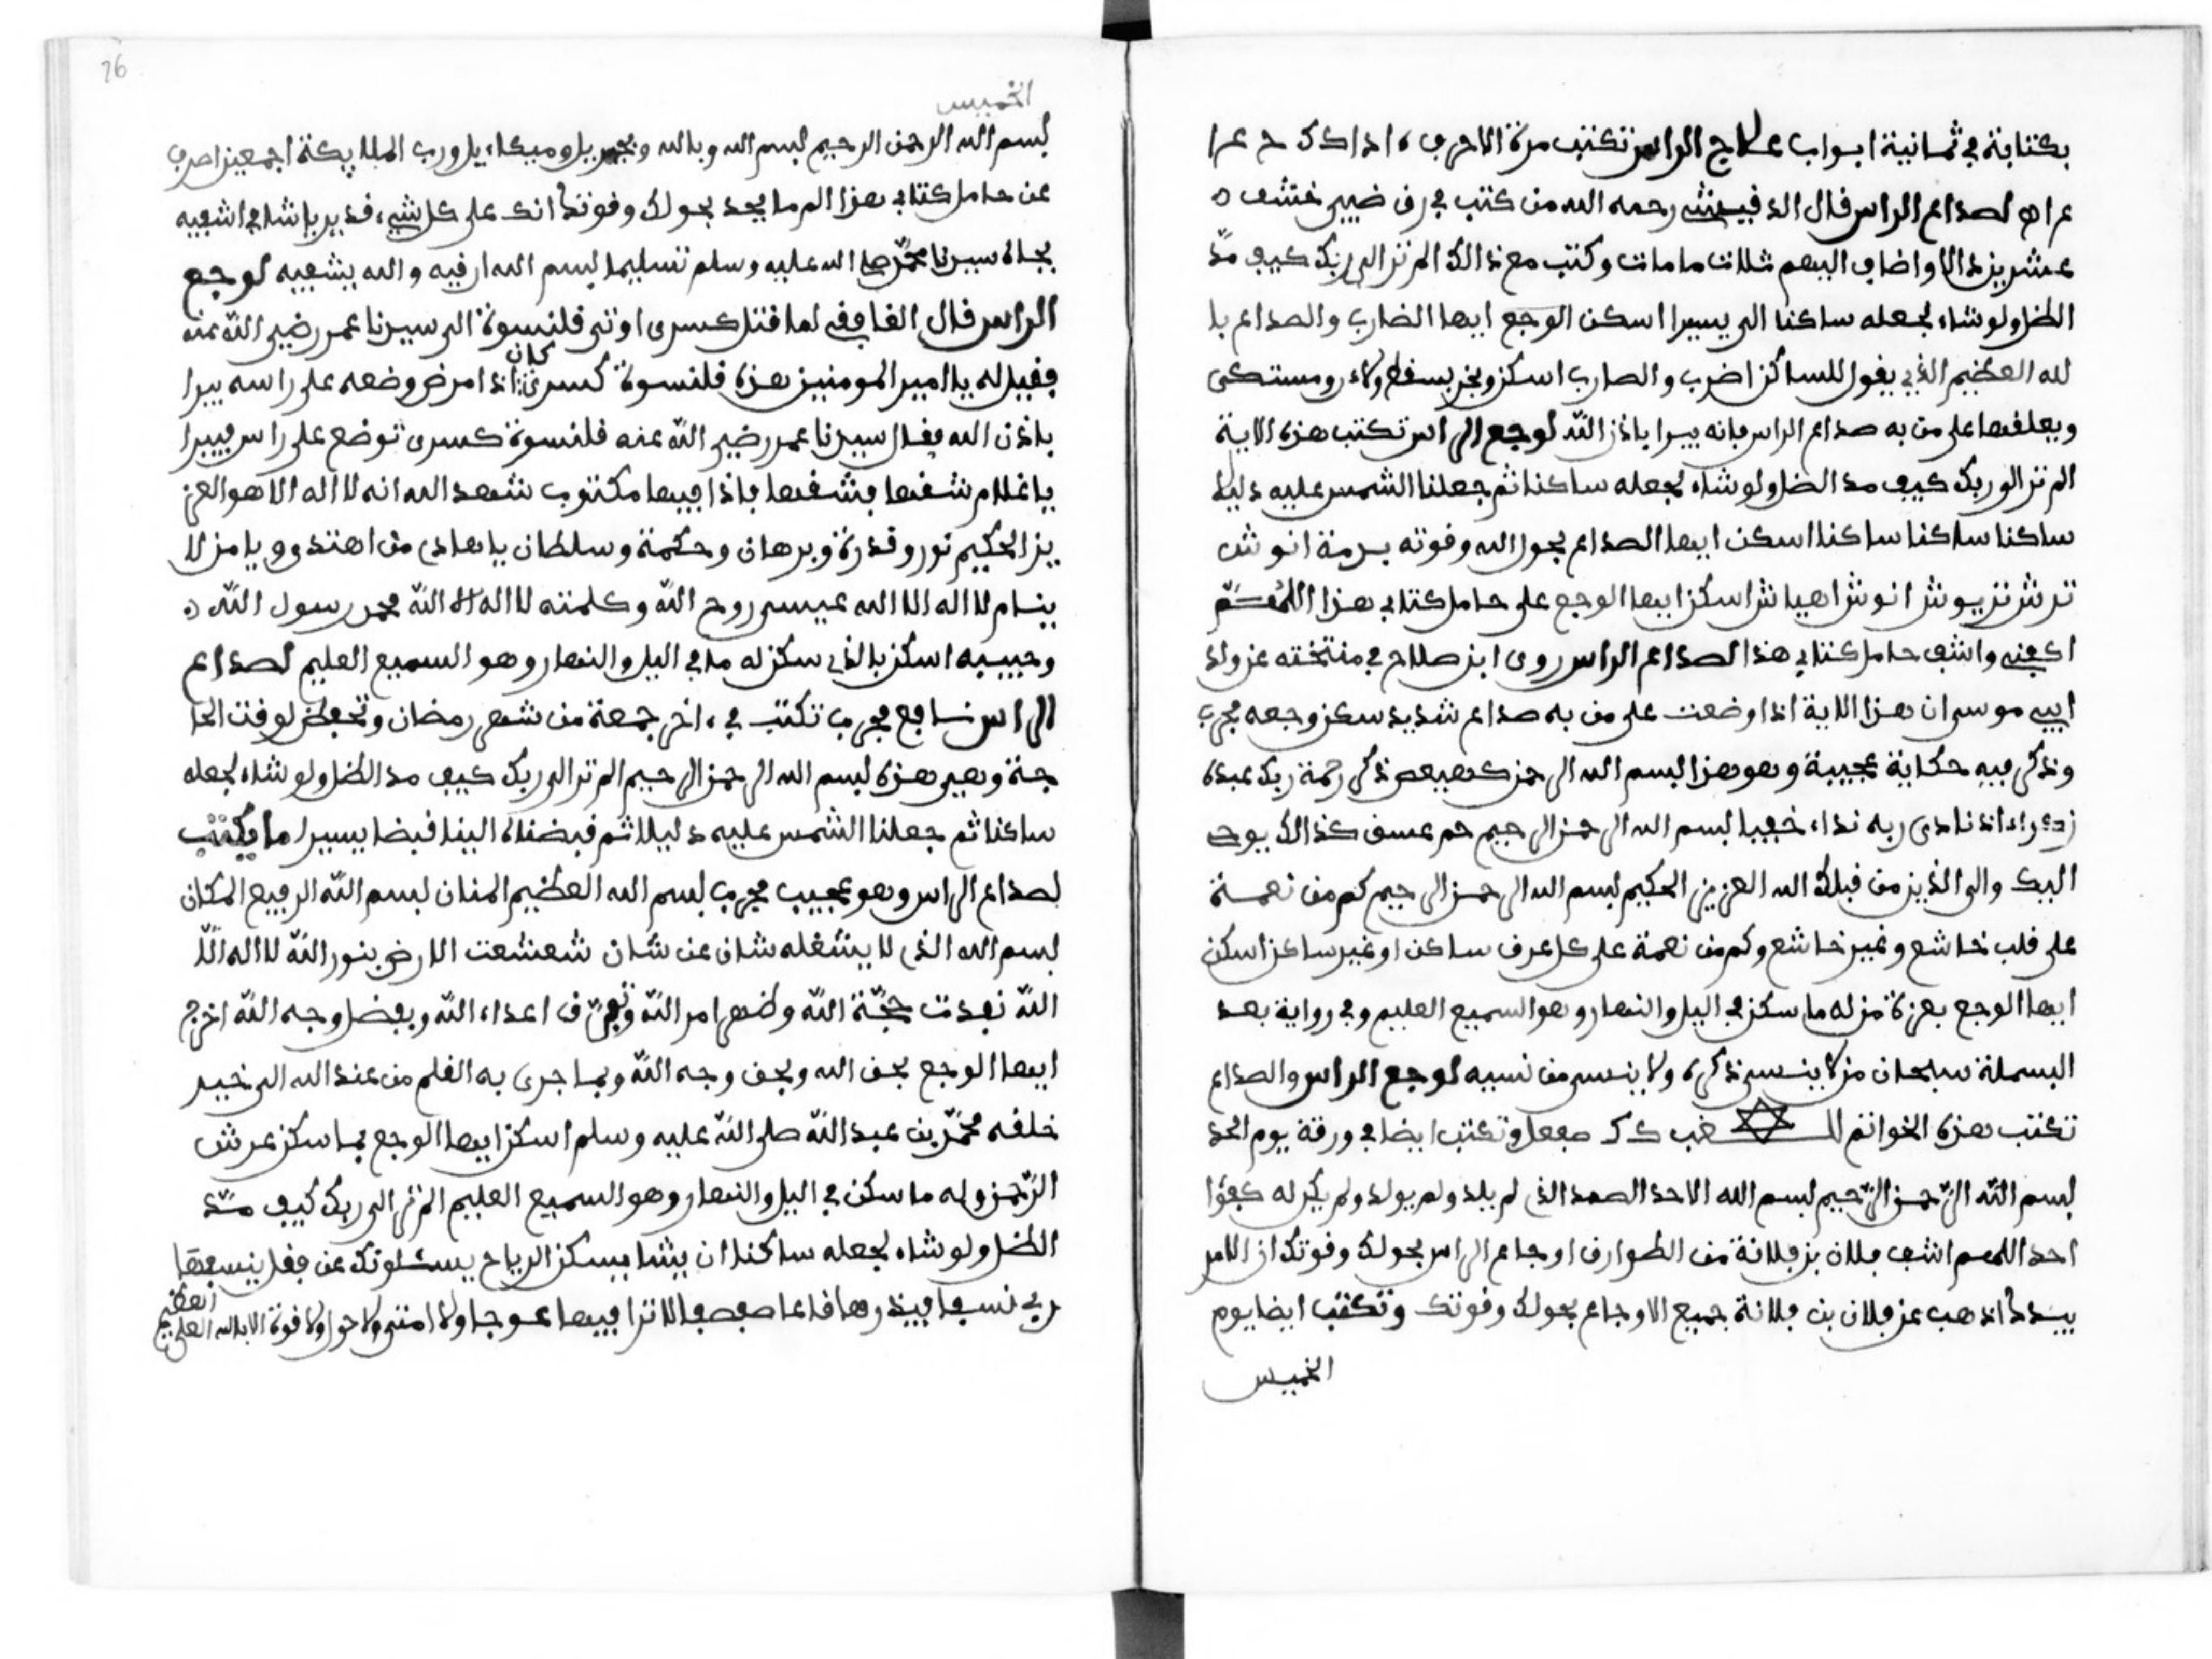 بكتابة في ثمانية ابواب علاج الراس تكتب مرة الاحرف اذا
لصداع الراس قال الدقيشي رحمه الله من كتب في رق ضبي خشف
عشرين دالا واضاف اليهم ثلاث مامات وكتب مع ذالك الم تر الى ربك كيف مدّ
الظل ولو شاء لجعله ساكنا الى يسيرا اسكن الوجع ايها الضارب والصداع با
لله العظيم الذي يقول للساكن اضرب والضارب اسكن وبخر بسقط ولاء رومستكى
ويعلقها على من به صداع الراس فانه يبرا باذن الله لوجع الراس تكتب هذه الاية
الم تر الى ربك كيف مد الظل ولو شاء لجعله ساكنا ثم جعلنا الشمس عليه دليلا
ساكنا ساكنا ساكنا اسكن ايها الصداع بحول الله وقوته برمة انوش
ترش نزيوش انوش اهياش اسكن ايها الوجع على حامل كتابي هذا اللهم
اكفني واشف حامل كتابي هذا لصداع الراس روى ابن صلاح في منتخته عن ولد
ابي موسى ان هذا الاية اذا وضعت على من به صداع شديد سكن وجعه مجرب
وذكر فيه حكاية عجيبة وهو هذا بسم الله الرحمن كهيعص ذكر رحمة ربك عبده
زكرياء اذ نادى ربه نداء خفيا بسم الله الرحمن الرحيم حم عسق كذالك يوحى
اليك والى الذين من قبلك الله العزيز الحكيم بسم الله الرحمن الرحيم كم من نعمة
على قلب خاشع وغير خاشع وكم من نعمة على كل عرق ساكن او غير ساكن اسكن
ايها الوجع بعزة من له ما سكن في اليل والنهار وهو السميع العليم وفي رواية بعد
البسملة سبحان من لا ينسى ذكره ولا ينسى من نسيه لوجع الراس والصداع
تكتب هذه الخواتم وتكتب ايضا في ورقة يوم الحد
بسم الله الرّحمن الرّحيم بسم الله الاحد الصمد الذي لم يلد ولم يولد ولم يكن له كفؤا
احد اللهم اشف فلان بن فلانة من الطوارق اوجاع الراس بحولك وقوتك ان الامر
بيدك اذهب عن فلان بن فلانة جميع الاوجاع بحولك وقوتك وتكتب ايضا يوم
الخميس
76
الخميس
بسم الله الرحمن الرحيم بسم الله وبالله وبجبريل وميكاءيل ورب الملايكة اجمعين اصرف
عن حامل كتابي هذا الم ما يجد بحولك وقوتك انك على كل شيء قدير يا شافي اشفيه
بجاه سيدنا محمّد صلى الله عليه وسلم تسليما بسم الله ارقيه والله يشفيه لوجع
الراس قال الفاقفي لما قتل كسرى اوتي قلنسوة الى سيدنا عمر رضي الله عنه
فقيل له يا امير المومنين هذه قلنسوة كسرى كان اذا مرض وضعه على راسه يبرا
باذن الله فقال سيدنا عمر رضي الله عنه قلنسوة كسرى توضع على راس فيبرا
يا غلام شقها فشقها فاذا فيها مكتوب شهد الله انه لا اله الا هو العز
يز الحكيم نور وقدرة وبرهان وحكمة وسلطان يا هادي من اهتدى ويا من لا
ينام لا اله الا الله عيسى روح الله وكلمته لا اله الا الله محمد رسول الله
وحبيبه اسكن بالذي سكن له ما في اليل والنهار وهو السميع العليم لصداع
الراس نافع مجرب تكتب في ءاخر جمعة من شهر رمضان وتحفظ لوقت الحا
جة وهي هذه بسم الله الرحمن الرحيم الم تر الى ربك كيف مد الظل ولو شاء لجعله
ساكنا ثم جعلنا الشمس عليه دليلا ثم قبضناه الينا قبضا يسيرا ما يكتب
لصداع الراس وهو عجيب مجرب بسم الله العظيم المنان بسم الله الرفيع المكان
بسم الله الذي لا يشغله شان عن شان شعشعت الارض بنور الله لا اله الّا
الله نفدت حجّة الله وظهر امر الله وتفرّق اعداء الله وبفضل وجه الله اخرج
ايها الوجع بحق الله وبحق وجه الله وبما جرى به القلم من عند الله الى خير
خلقه محمّد بن عبد الله صلى الله عليه وسلم اسكن ايها الوجع بما سكن عرش
الرّحمن وله ما سكن في اليل والنهار وهو السميع العليم الم تر الى ربك كيف مدّ
الظل ولو شاء لجعله ساكنا ان يشا يسكن الرياح يسئلونك عن فقل ينسفها
ربي نسفا فيذرها قاعا صفصفا لا ترا فيها عوجا ولا امتى ولا حول ولا قوة الا بالله العلي
العظيم